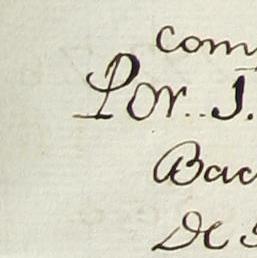 Com
Por. J.
Bac
De